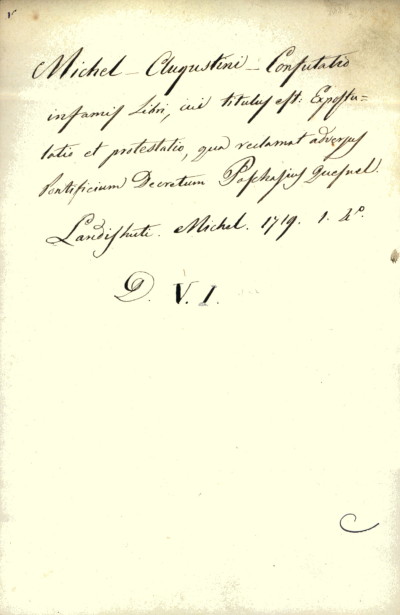 Michel - Augustini - Confutatio
infamis Libri, cui titulus est: Expostu=
latio et protestatio, qua reclamat adversus
Pontificium Decretum Paschasius Quesnel.
Landishuti. Michel. 1719. 1. 4º.
D. V. I.